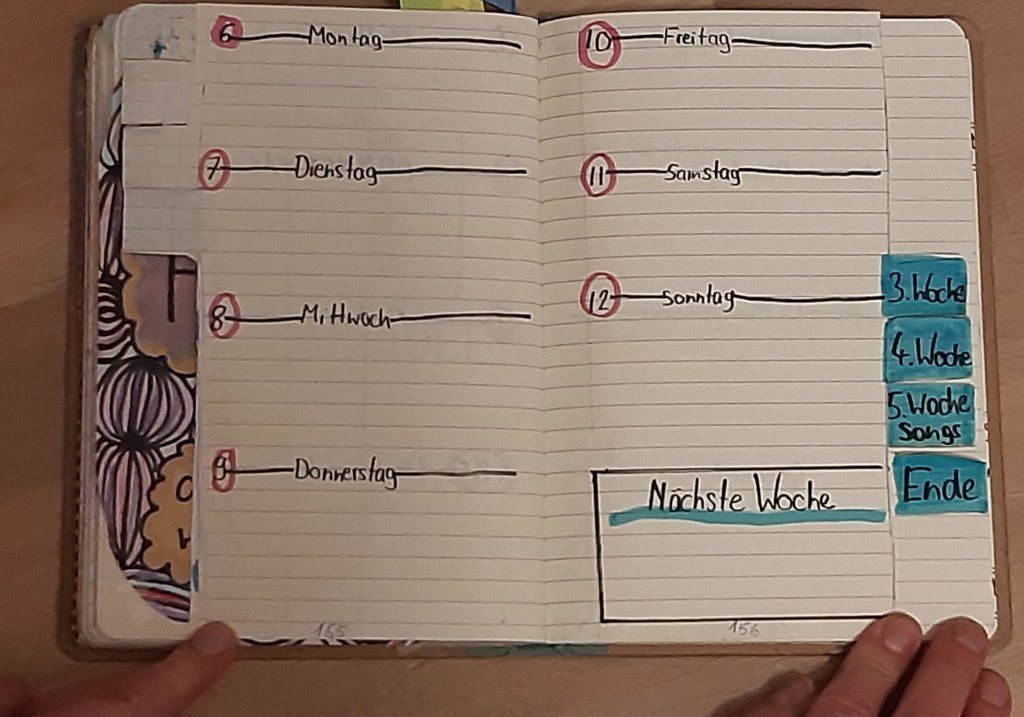 6 Montag
7 Dienstag
8 Mittwoch
9 Donnerstag
155
10 Freitag
11 Samstag
12 Sonntag
Nächste Woche
156
3. Woche
4. Woche
5. Woche
Songs
Ende